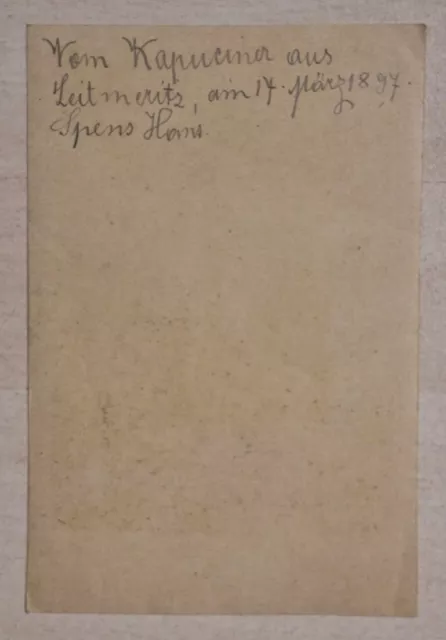 Vom Kapuciner aus
Leitmeritz, am 17. März 1897.
Spens Hans.